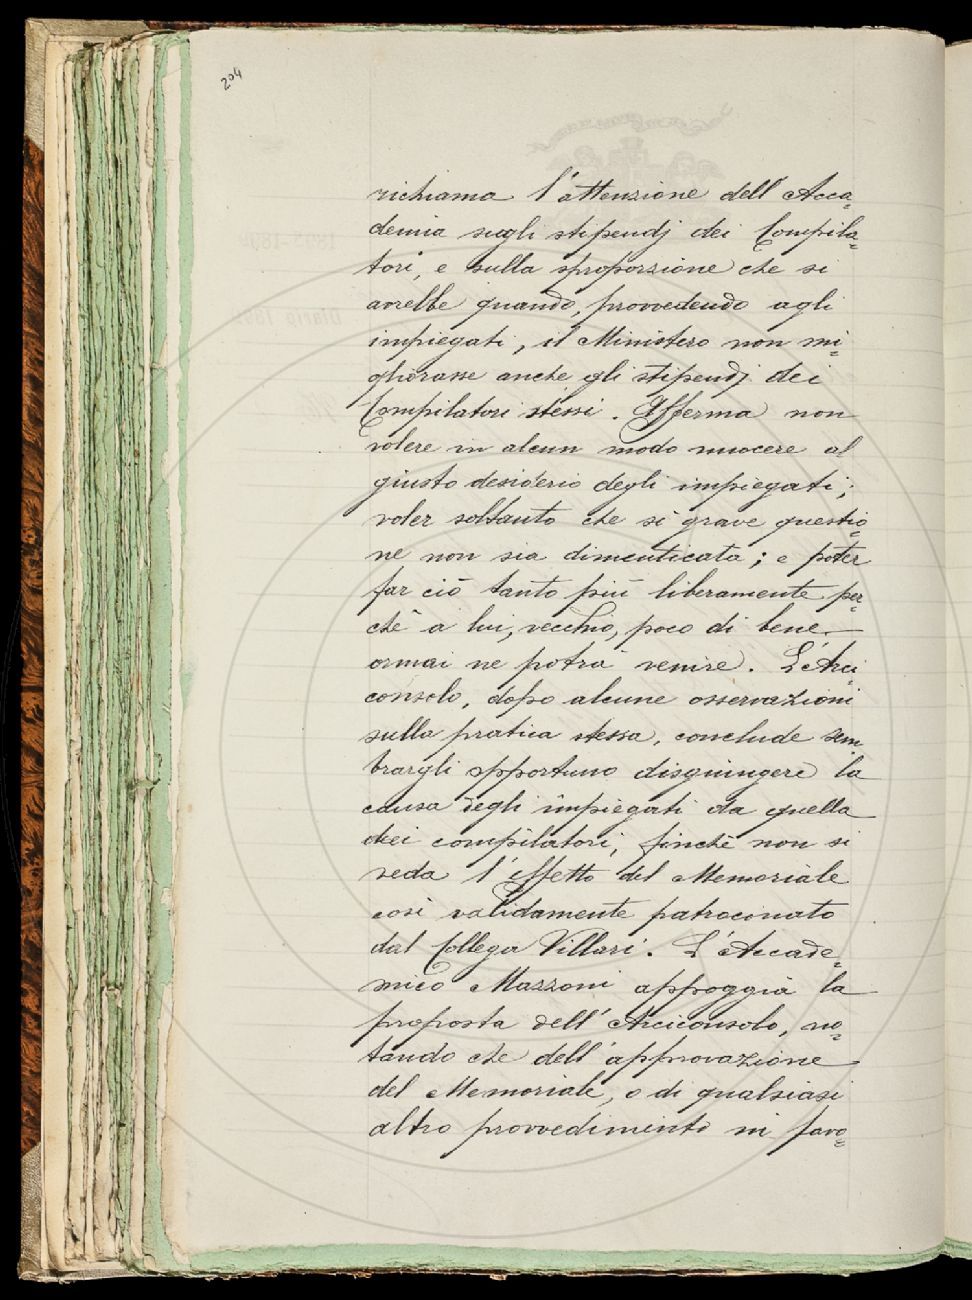 204
richiama l'attenzione dell'Acca=
demia sugli stipendj dei Compila=
tori, e sulla sproporzione che si
avrebbe quando, provvedendo agli
impiegati, il Ministero non mi=
gliorasse anche gli stipendj dei
Compilatori stessi. Afferma non
volere in alcun modo nuocere al
giusto desiderio degli impiegati;
voler soltanto che sì grave questio=
ne non sia dimenticata; e poter
far ciò tanto più liberamente per=
chè a lui, vecchio, poco di bene
ormai ne potrà venire. L'Arci=
consolo, dopo alcune osservazioni
sulla pratica stessa, conclude sem
brargli opportuno disgiungere la
causa degli impiegati da quella
dei compilatori, finchè non si
veda l'effetto del Memoriale
così validamente patrocinato
dal Collega Villari. L'Accade=
mico Mazzoni appoggia la
proposta dell'Arciconsolo, no=
tando che dell'approvazione
del Memoriale, o di qualsiasi
altro provvedimento in favo=